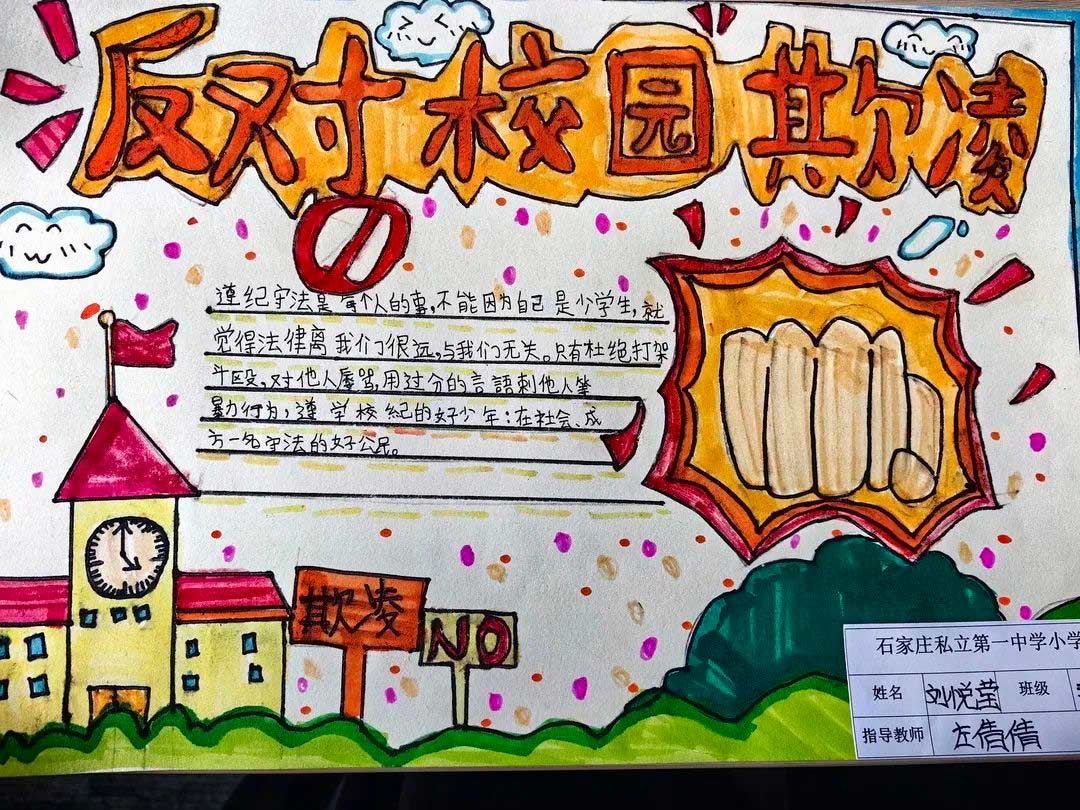 反对校园欺凌
遵纪守法是每个人的事,不能因为自己是少学生,就
觉得法律离我们很远,与我们无关。只有杜绝打架
斗殴,对他人辱骂,用过分的言語刺他人等
暴力行为,遵学校紀的好少年:在社会、成
方一名守法的好公民。
欺凌
NO
石家庄私立第一中学小学
姓名 刘悦莹 班级
指导教师 左倩倩